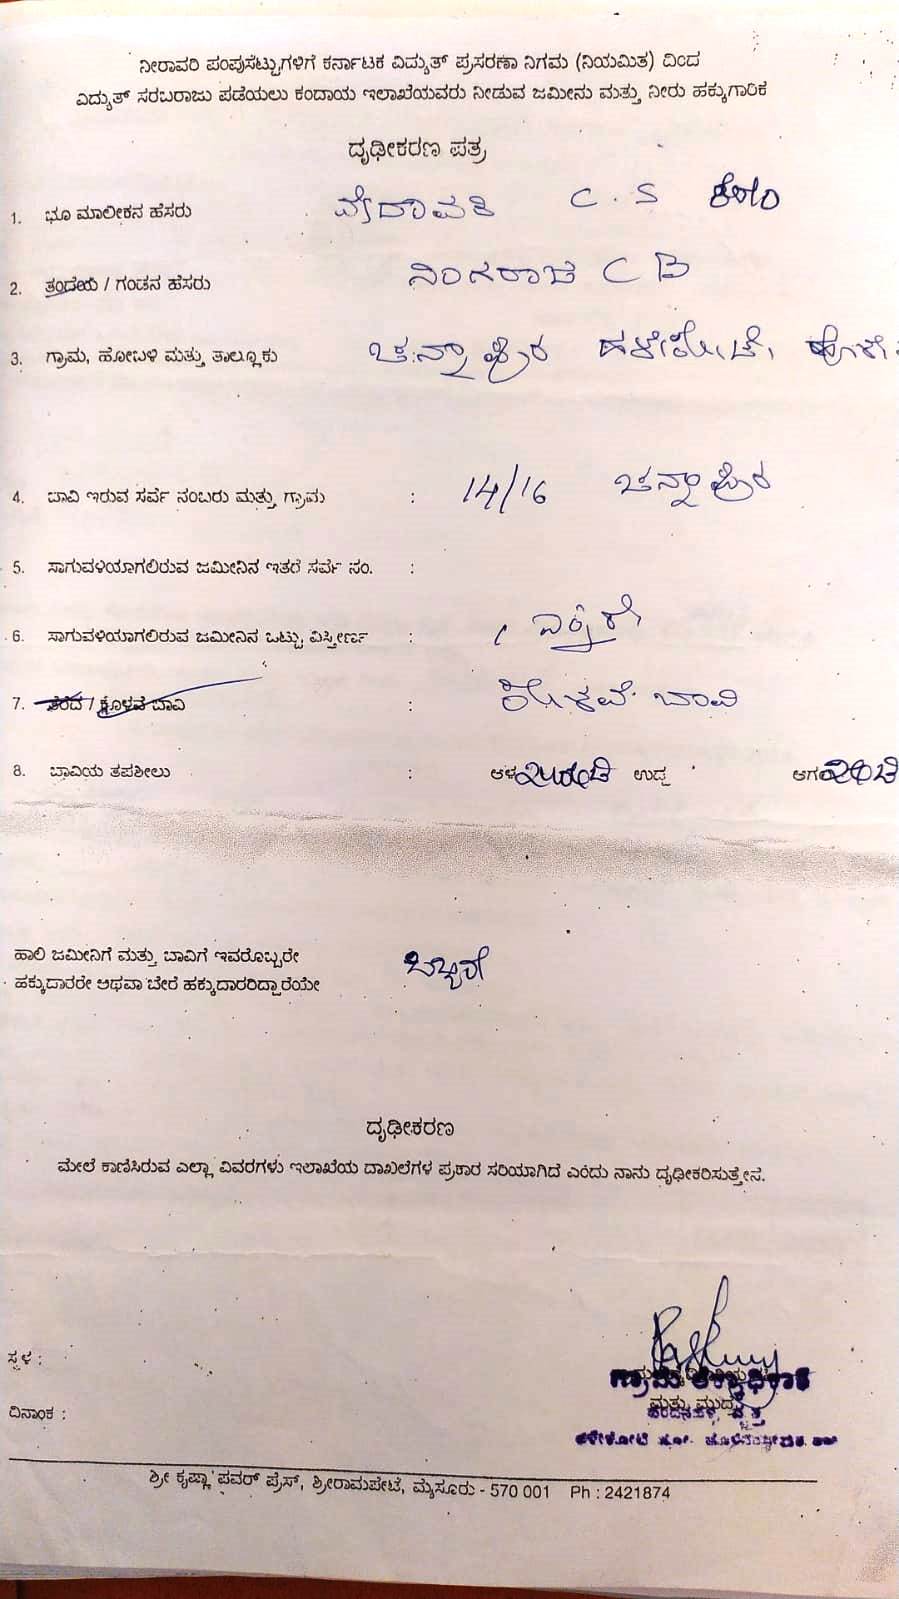 ನೀರಾವರಿ ಪಂಪುಸೆಟ್ಟುಗಳಿಗೆ ಕರ್ನಾಟಕ ವಿದ್ಯುತ್ ಪ್ರಸರಣಾ ನಿಗಮ (ನಿಯಮಿತ) ದಿಂದ
ವಿದ್ಯುತ್ ಸರಬರಾಜು ಪಡೆಯಲು ಕಂದಾಯ ಇಲಾಖೆಯವರು ನೀಡುವ ಜಮೀನು ಮತ್ತು ನೀರು ಹಕ್ಕುಗಾರಿಕೆ
ದೃಢೀಕರಣ ಪತ್ರ
1. ಭೂ ಮಾಲೀಕನ ಹೆಸರು ವೇದಾವತಿ C.S ಕೋಂ
2. ತಂದೆಯ / ಗಂಡನ ಹೆಸರು ನಿಂಗರಾಜೆ C B
3. ಗ್ರಾಮ, ಹೋಬಳಿ ಮತ್ತು ತಾಲ್ಲೂಕು ಚನ್ನಾಪುರ ಹಳೇಕೋಟೆ,
4. ಬಾವಿ ಇರುವ ಸರ್ವೆ ನಂಬರು ಮತ್ತು ಗ್ರಾಮ : 14/16 ಚನ್ನಾಪುರ
5. ಸಾಗುವಳಿಯಾಗಲಿರುವ ಜಮೀನಿನ ಇತರೆ ಸರ್ವೆ ನಂ. :
6. ಸಾಗುವಳಿಯಾಗಲಿರುವ ಜಮೀನಿನ ಒಟ್ಟು ವಿಸ್ತೀರ್ಣ : 1 ಎಕ್ರೆ
7. ತೆರೆದ / ಕೊಳವೆ ಬಾವಿ : ಕೊಳವೆ ಬಾವಿ
8. ಬಾವಿಯ ತಪಶೀಲು : ಆಳ ಉದ್ದ ಅಗಲ
ಹಾಲಿ ಜಮೀನಿಗೆ ಮತ್ತು ಬಾವಿಗೆ ಇವರೊಬ್ಬರೇ ಒಬ್ಬರೇ
ಹಕ್ಕುದಾರರೇ ಅಥವಾ ಬೇರೆ ಹಕ್ಕುದಾರರಿದ್ದಾರೆಯೇ
ದೃಢೀಕರಣ
ಮೇಲೆ ಕಾಣಿಸಿರುವ ಎಲ್ಲಾ ವಿವರಗಳು ಇಲಾಖೆಯ ದಾಖಲೆಗಳ ಪ್ರಕಾರ ಸರಿಯಾಗಿದೆ ಎಂದು ನಾನು ದೃಢೀಕರಿಸುತ್ತೇನೆ.
ಸ್ಥಳ :
ಗ್ರಾಮ ಲೆಕ್ಕಾಧಿಕಾರಿ
ಮತ್ತು ಮುದ್ರೆ
ದಿನಾಂಕ :
ಶ್ರೀ ಕೃಷ್ಣಾ ಪವರ್ ಪ್ರೆಸ್, ಶ್ರೀರಾಮಪೇಟೆ, ಮೈಸೂರು - 570 001 Ph : 2421874